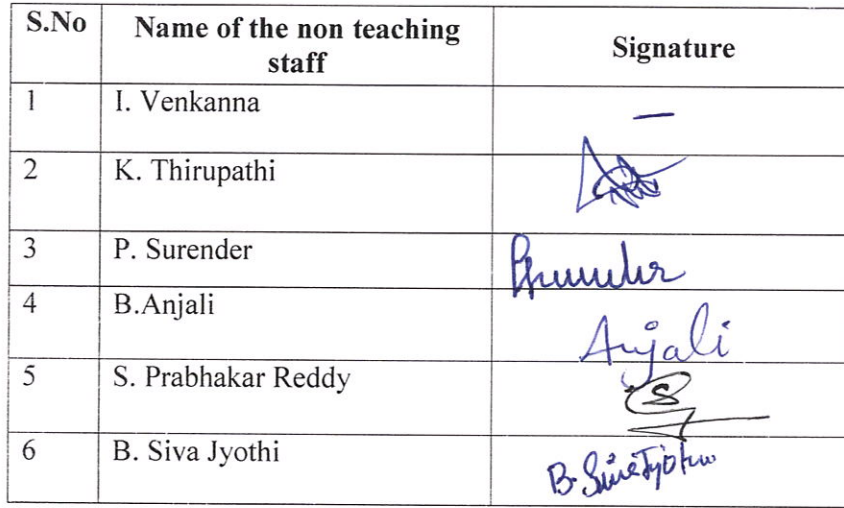 S.No Name of the non teaching staff Signature
1 I. Venkanna –
2 K. Thirupathi
3 P. Surender
4 B.Anjali Anjali
5 S. Prabhakar Reddy
6 B. Siva Jyothi B. Siva Jyothi